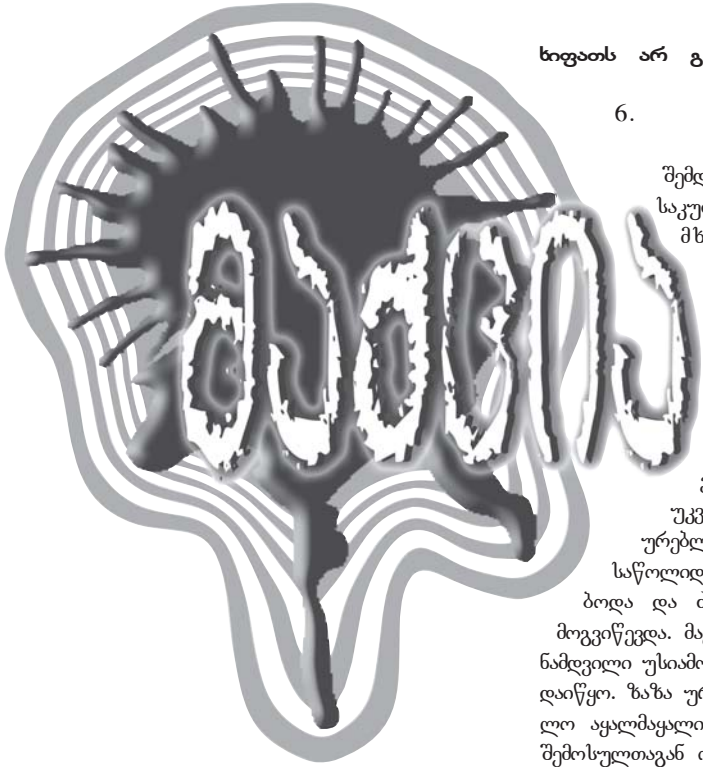 ხიფათს არ გ
6.
შემდ
საკუ
მხ
უკვ
ურებლ
საწოლიდ
ბოდა და
მოგვიწევდა. მა
ნამდვილი უსიამო
დაიწყო. ზაზა ურ
ლო აყალმაყალი
შემოსულთაგან